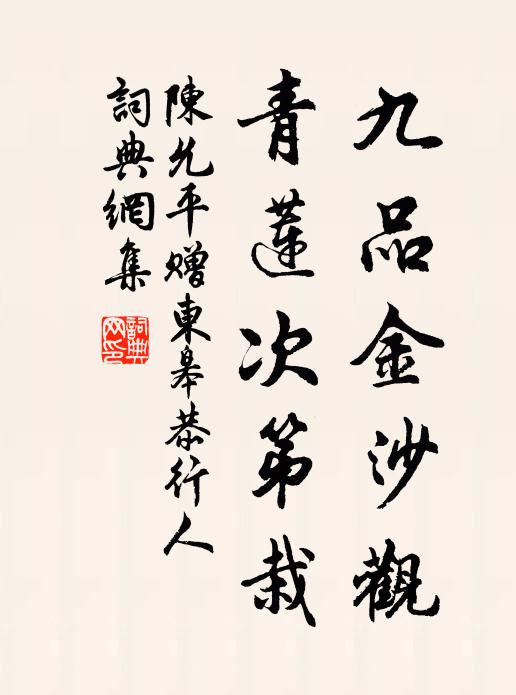 九品金沙觀
青蓮次第栽
陳允平贈東皋恭行人
詞典網集
詞典网印